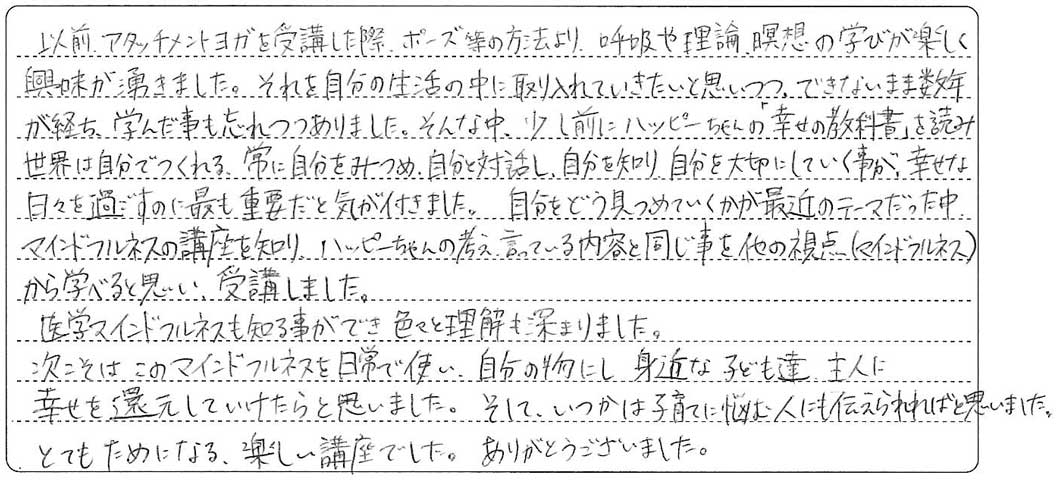 以前、アタッチメントヨガを受講した際、ポーズ等の方法より、呼吸や理論、瞑想の学びが楽しく
興味が湧きました。それを自分の生活の中に取り入れていきたいと思いつつ、できないまま数年
が経ち、学んだ事も忘れつつありました。そんな中、少し前にハッピーちゃんの「幸せの教科書」を読み
世界は自分でつくれる、常に自分をみつめ、自分と対話し、自分を知り、自分を大切にしていく事が、幸せな
日々を過ごすのに最も重要だと気が付きました。 自分をどう見つめていくかが最近のテーマだった中、
マインドフルネスの講座を知り、ハッピーちゃんの考え、言っている内容と同じ事を他の視点(マインドフルネス)
から学べると思い、受講しました。
医学マインドフルネスも知る事ができ色々と理解も深まりました。
次こそは このマインドフルネスを日常で使い、自分の物にし 身近な子ども達 主人に
幸せを還元していけたらと思いました。そして、いつかは子育てに悩む人にも伝えられればと思いました。
とてもためになる、楽しい講座でした。ありがとうございました。